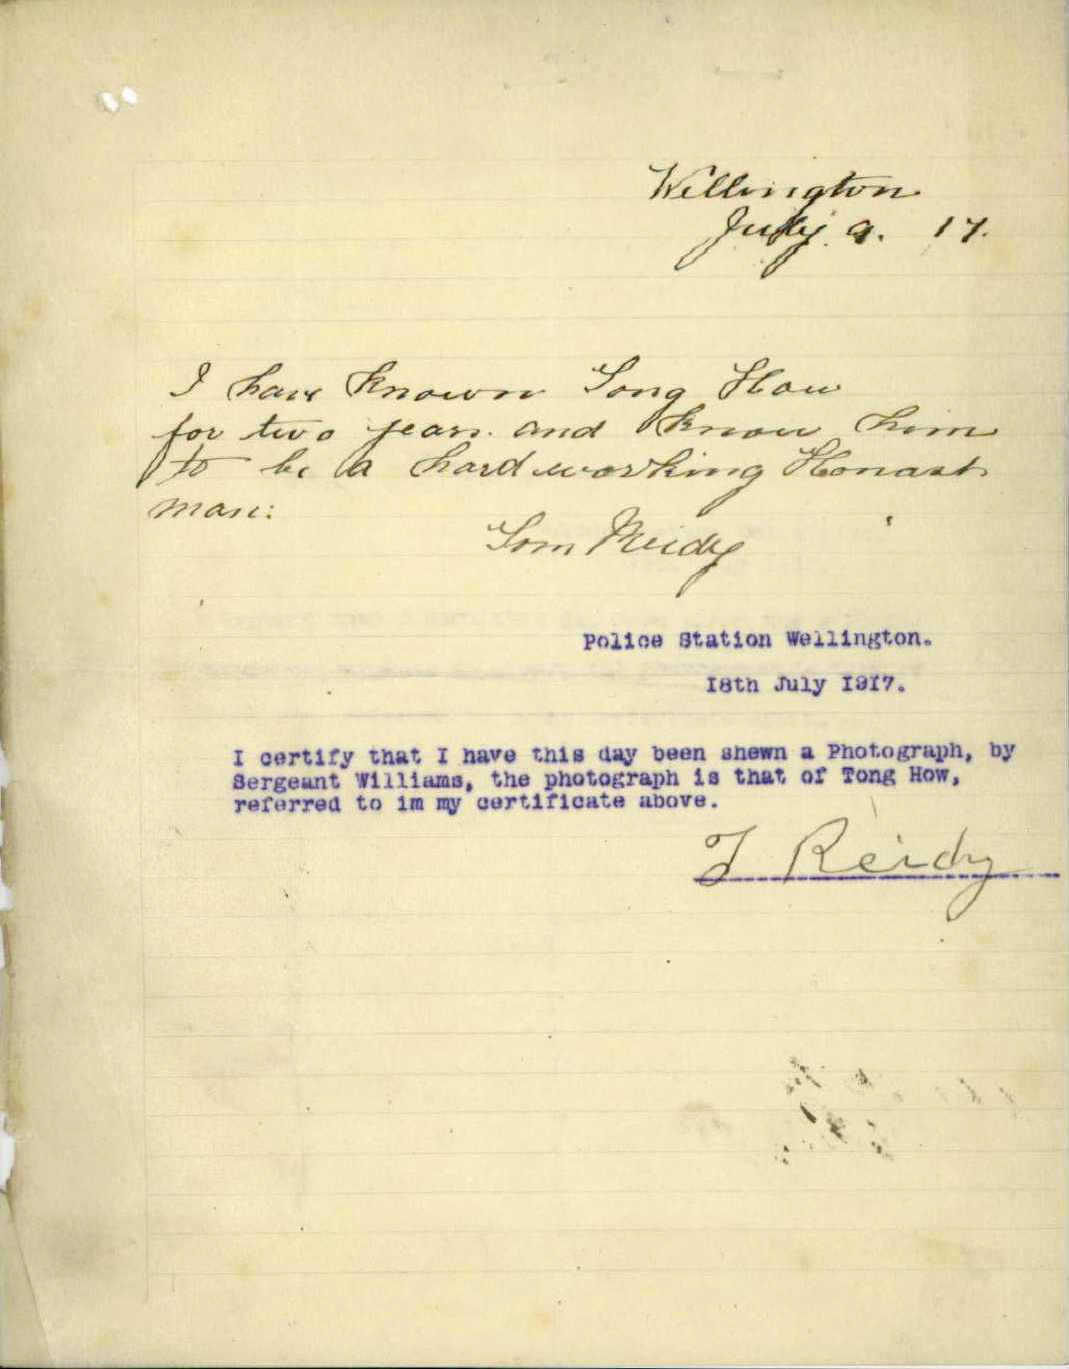 Wellington
July 9. 17.
I have known Tong How
for two years. and know him
to be a hard working Honast
man:
Tom Reidy
Police Station Wellington.
I8th July I9I7.
I certify that I have this day been shewn a Photograph, by
Sergeant Williams, the photograph is that of Tong How,
referred to im my certificate above.
T Reidy